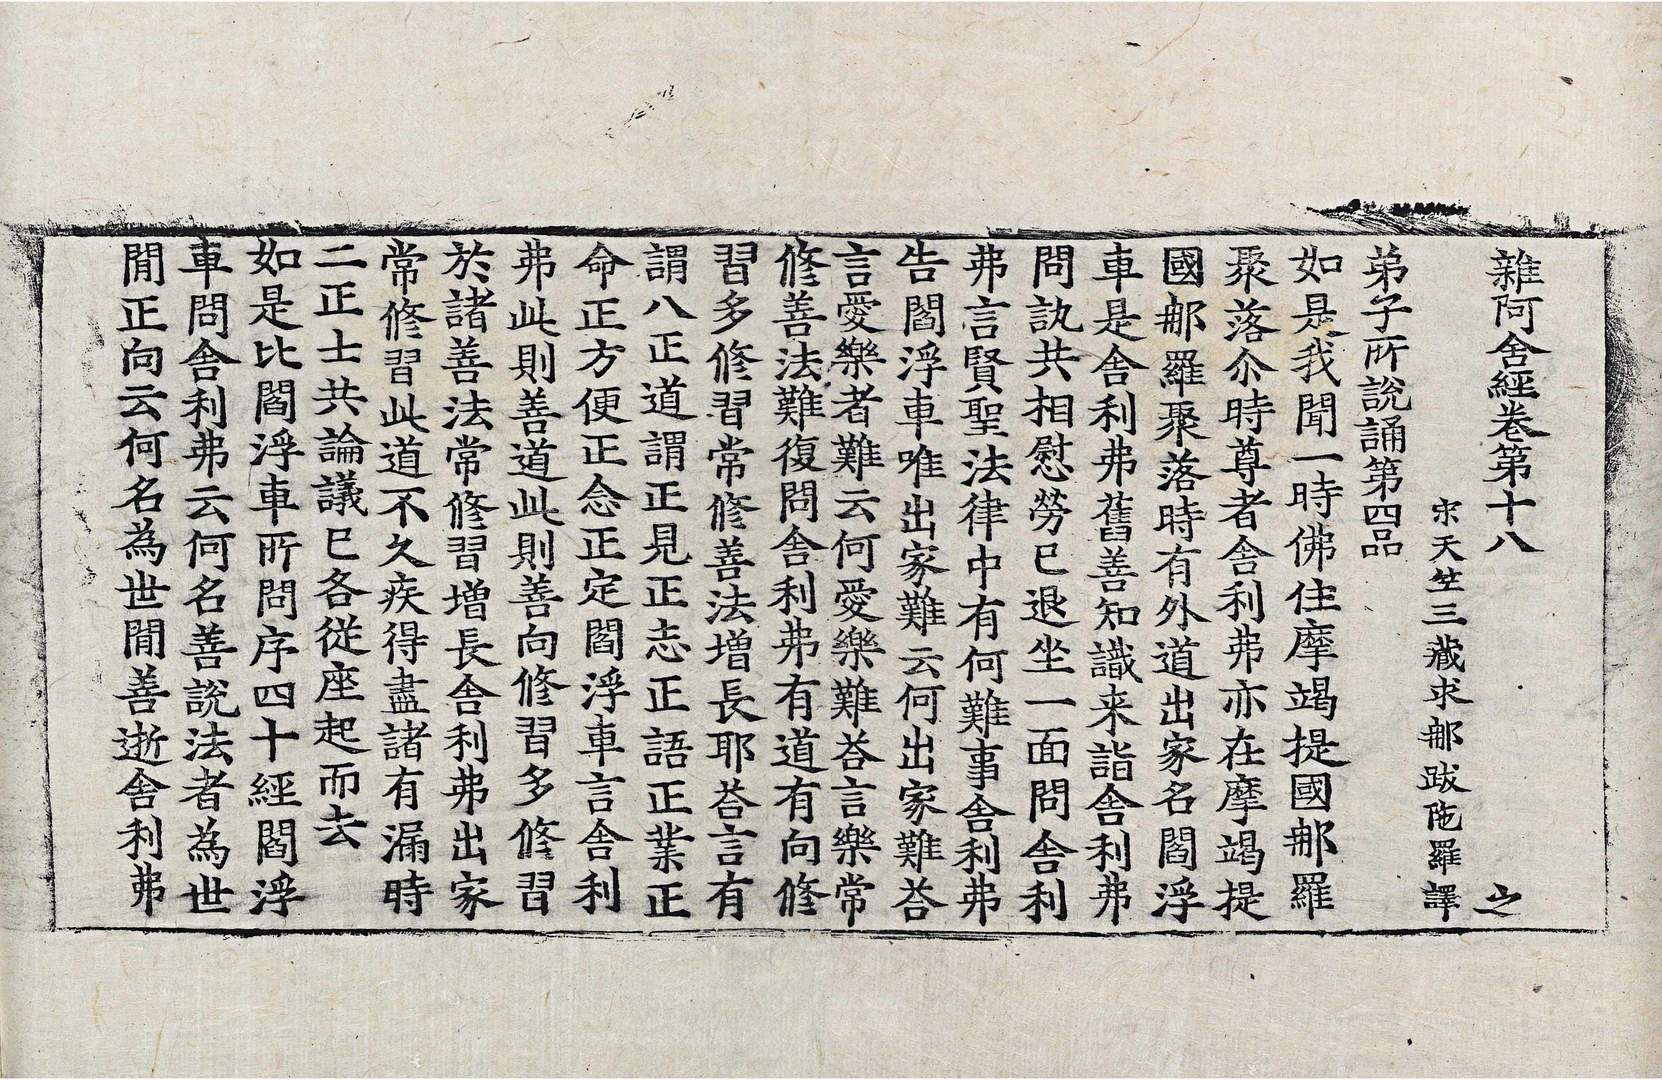 雜阿含經卷第十八 之
宋天竺三藏求那跋陁羅譯
弟子所說誦第四品
如是我聞一時佛住摩竭提國那羅
聚落尒時尊者舍利弗亦在摩竭提
國那羅聚落時有外道出家名閻浮
車是舍利弗舊善知識来詣舍利弗
問訊共相慰勞已退坐一面問舍利
弗言賢聖法律中有何難事舍利弗
告閻浮車唯出家難云何出家難荅
言愛樂者難云何愛樂難荅言樂常
修善法難復問舍利弗有道有向修
習多修習常修善法增長耶荅言有
謂八正道謂正見正志正語正業正
命正方便正念正定閻浮車言舍利
弗此則善道此則善向修習多修習
於諸善法常修習增長舍利弗出家
常修習此道不久疾得盡諸有漏時
二正士共論議已各從座起而去
如是比閻浮車所問序四十經閻浮
車問舍利弗云何名善說法者為世
閒正向云何名為世閒善逝舍利弗